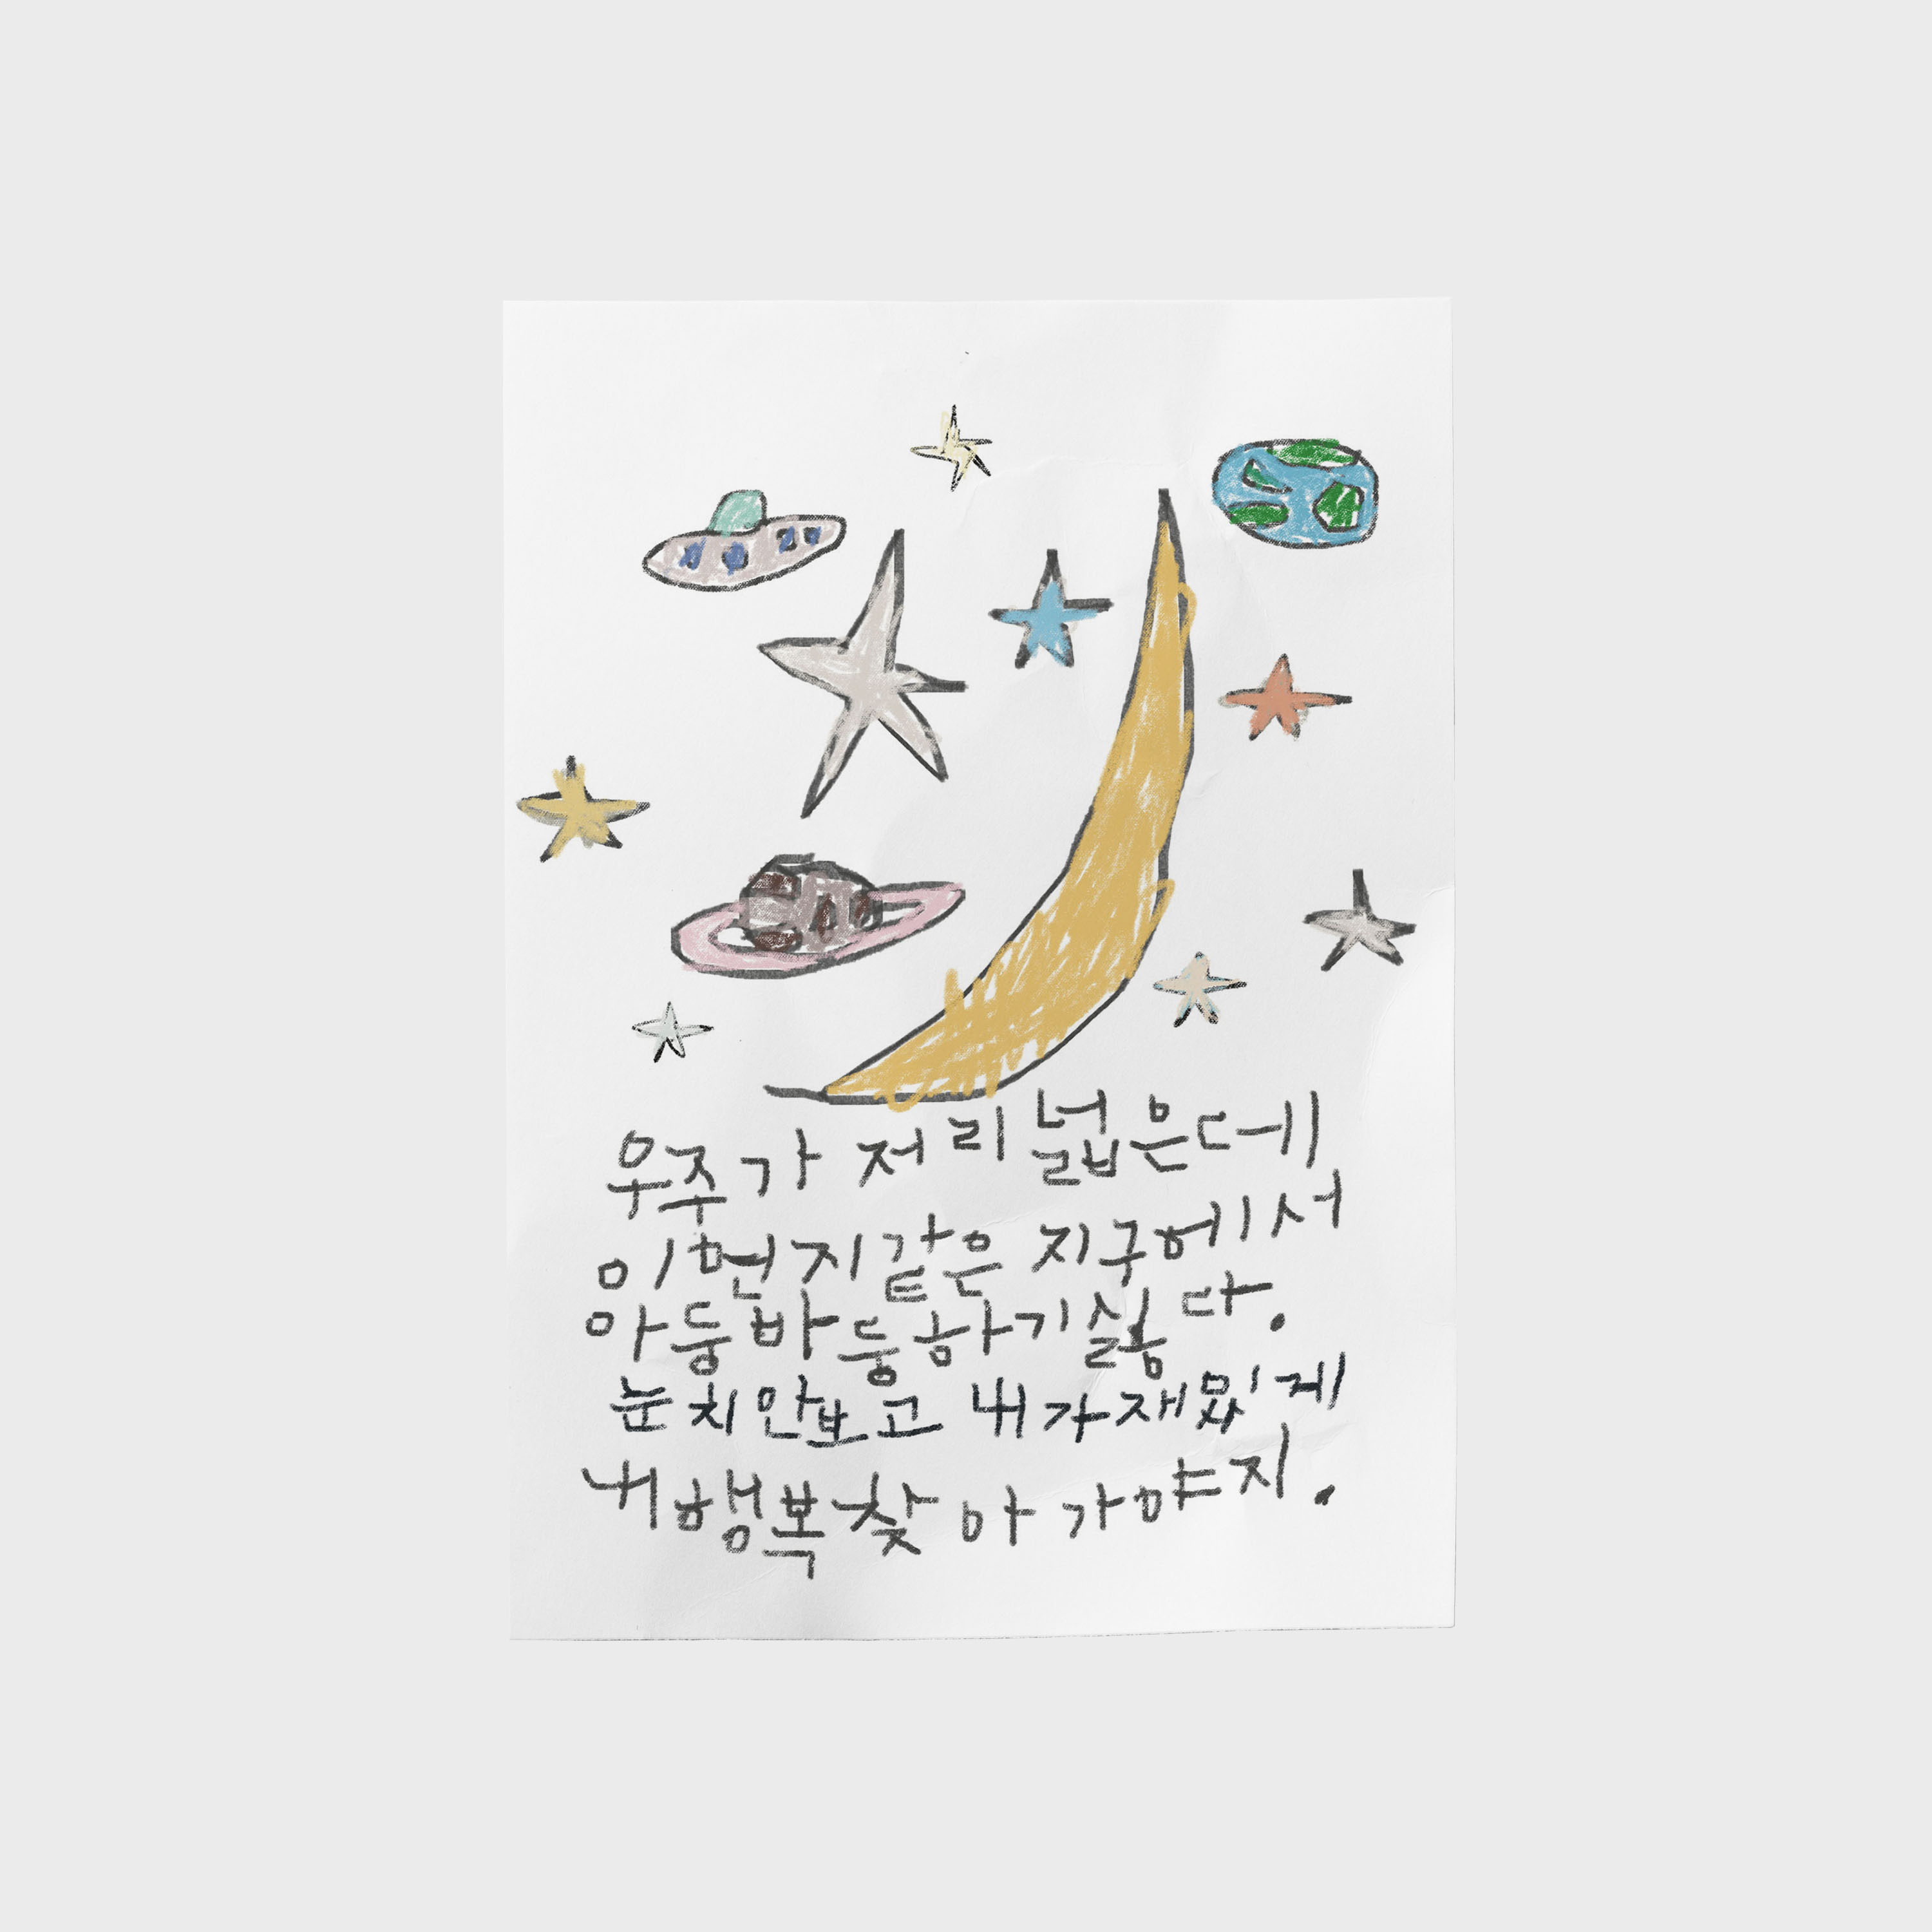 우주가 저리 넓은데
이 먼지같은 지구에서
아둥바둥하기 싫다.
눈치 안보고 내가 재밌게
내 행복 찾아 가야지.